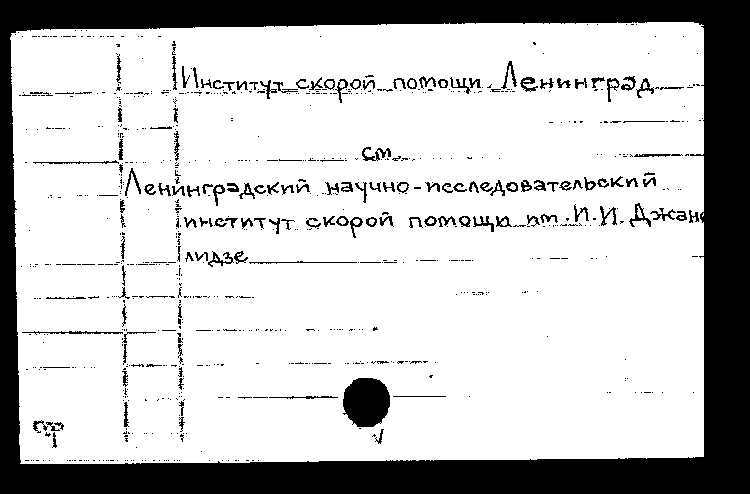 Институт скорой помощи. Ленинград
см.
Ленинградский научно-исследовательский
институт скорой помощи им. И.И. Джане
лидзе